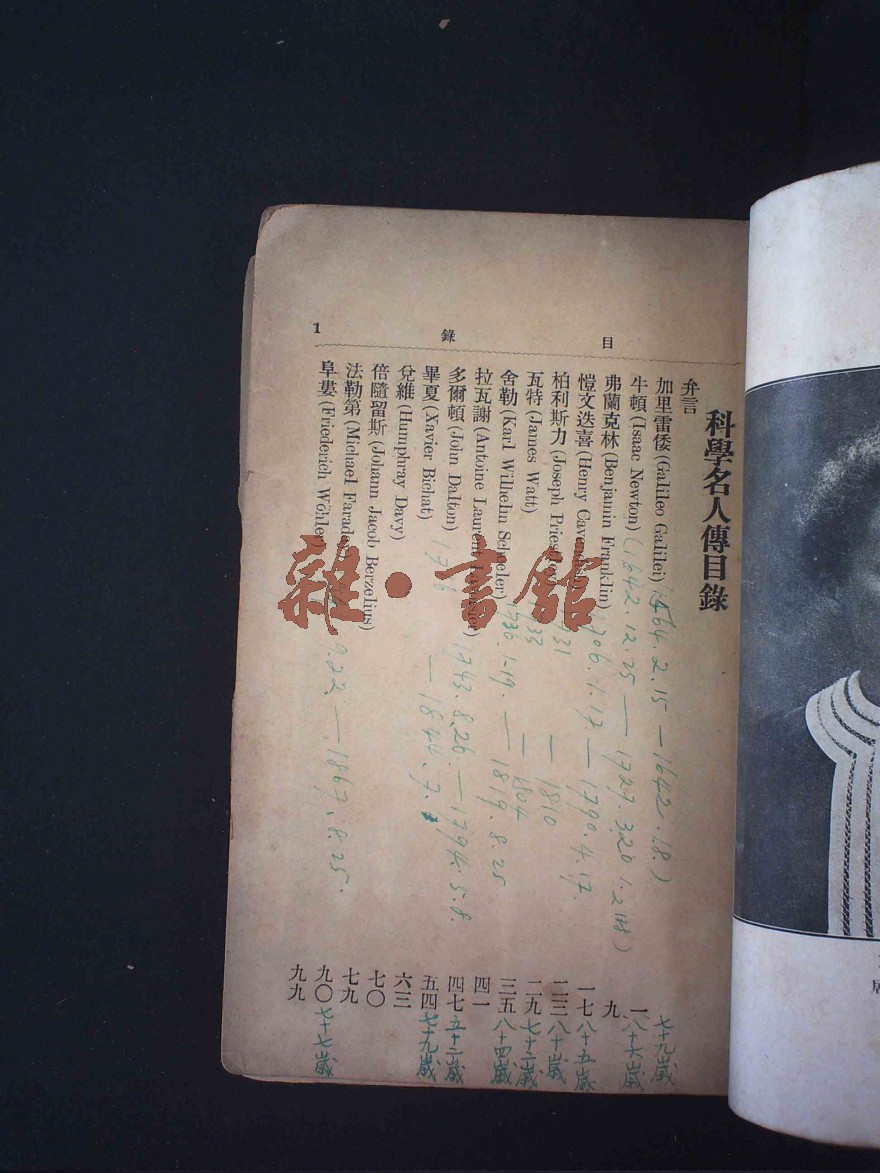 科學名人傳目錄
弁言
加里雷倭(Galileo Galilei) 1564.2.15—1642.1.8.) 一 七十九歲
牛頓(Isaac Newton) (1642.12.25—1727.3.20 九 八十六歲
弗蘭克林(Benjamin Franklin) 1706.1.17.—1790.4.17. 一七 八十五歲
愷文迭喜(Henry Cavendish) 1731—1810 二三 八十歲
柏利斯力(Joseph Priestley) 1733—1804 二九 七十二歲
瓦特(James Watt) 1736.1.19.—1819.8.25 三五 八十四歲
舍勒(Karl Wilhelm Scheeler) 四一
拉瓦謝(Antoine Laurent Lavoisier) 1743.8.26.—1794.5.8. 四七 五十二歲
多爾頓(John Dalton) 1766—1844.7. 五四 七十九歲
畢夏(Xavier Bichat) 六三
兌維(Humphray Davy) 七〇
倍隨留斯(Johann Jacob Berzelius) 七九
法勒第(Michael Faraday) 9.22.—1867.8.25. 九〇 七十七歲
阜婁(Friederich Wöhler) 九九
目
錄
1
雜·書館